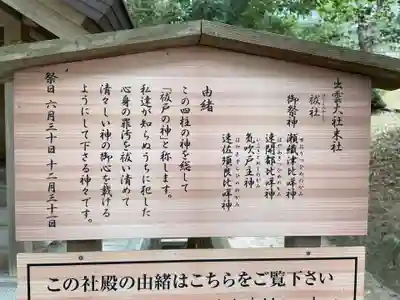 出雲大社末社
祓社
御祭神 瀬織津比咩神
速開都比咩神
気吹戸主神
速佐須良比咩神
由緒
この四柱の神を総して
「祓戸の神」と称します。
私達が知らぬうちに犯した
心身の罪汚を祓い清めて
清々しい神の御心を戴ける
ようにして下さる神々です。
祭日 六月三十日 十二月三十一日
この社殿の由緒はこちらをご覧下さい